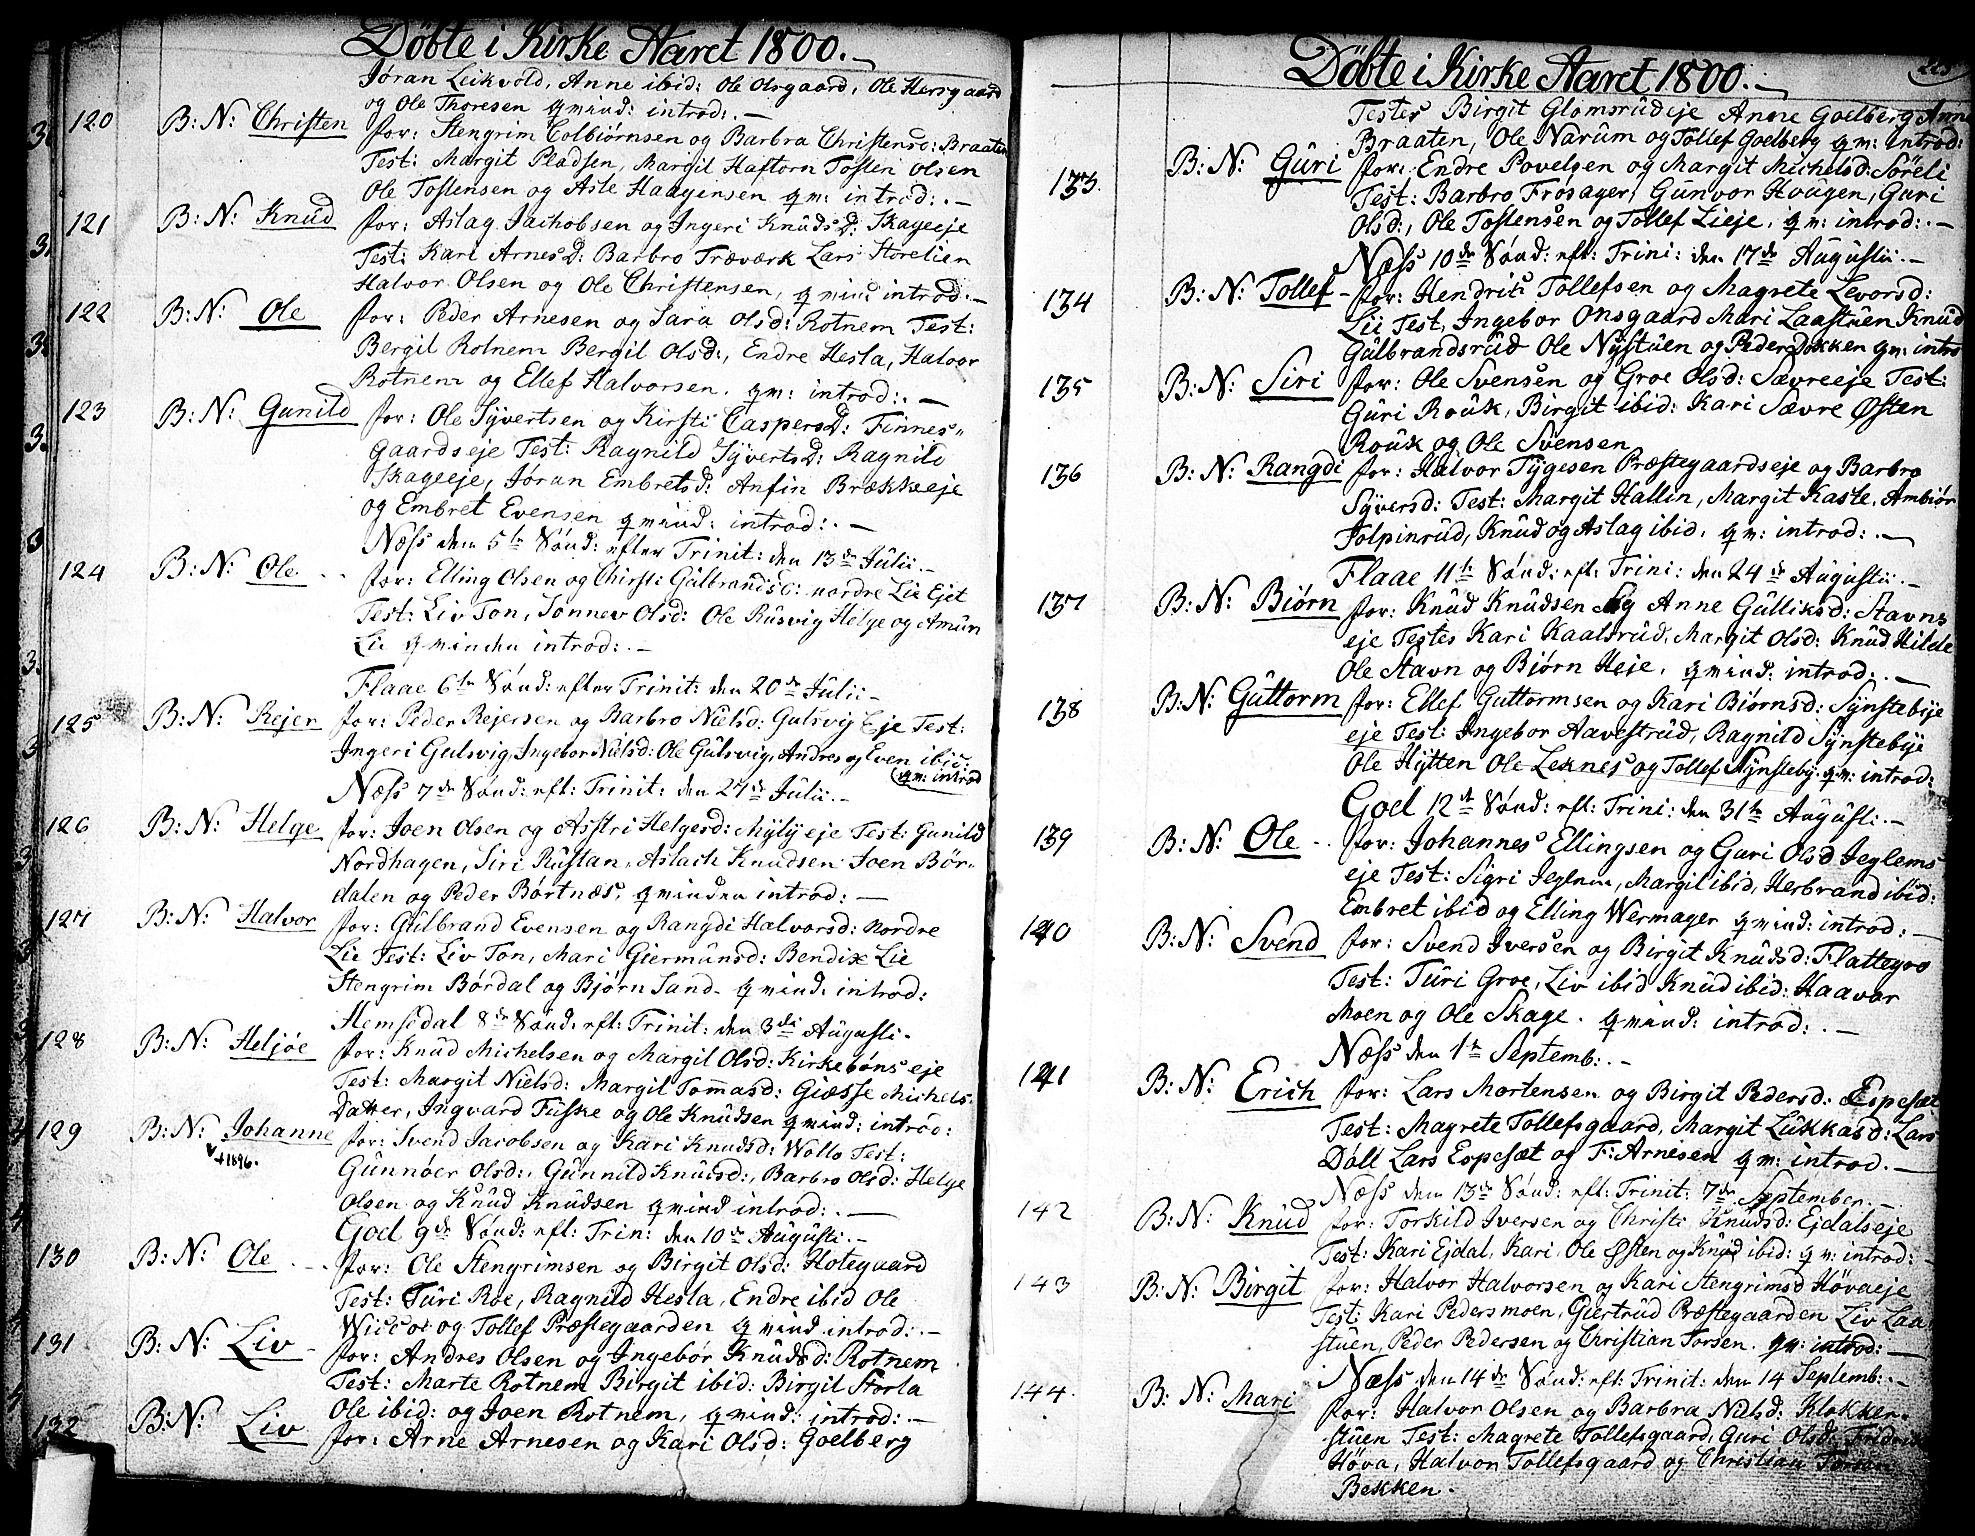 Döbte i Kirke Aaret 1800.
Jøran Leikvold, Anne ibid: Ole Olsgaard, Ole Hersgaard
og Ole Thoresen qvind: introd:.
120 B: N: Christen for: Stengrim Colbiørnsen og Barbra Christensd: Braaten
Test: Margit Pladsen, Margit Haftorn Tosten Olsen
Ole Tostensen og Asle Haagensen qv: introd:.
121 B: N: Knud for: Aslag Jachobsen og Ingeri KnudsD: Skageeje
Test: Kari ArnesD: Barbro Træværk Lars Storelien
Halvor Olsen og Ole Christensen, qvind introd:
122 B: N: Ole for: Peder Arnesen og Sara Olsd: Rotnem Test:
Bergit Rotnem Bergit Olsd:, Endre Hesla, Halvor
Rotnem og Ellef Halvorsen. qv: introd:.
123 B: N: Gunild for: Ole Syvertsen og Kirsti CaspersD: Finnes
gaardseje Test: Ragnild SyvertsD: Ragnild
Skageeje, Jøran Embretsd: Anfin Brækkeeje
og Embret Evensen qvind: introd:.
Næss dem 5te Sönd: efter Trinit: den 13de Julii.
124 B: N: Ole for: Elling Olsen og Chirsti Gulbrandsd: nordre Lie Ejet
Test: Liv Ton, Sonnev Olsd: Ole Rusvig Helge og Amun
Lie qvinden introd:.
Flaae 6te Sönd: efter Trinit: den 20de Julii
125 B: N: Rejer for: Peder Rejersen og Barbro Nielsd: Gulsvig Eje Test:
Ingeri Gulsvig, Ingebor Nielsd: Ole Gulsvig, Andres og Even ibid:
qv: introd
Næss 7de Sönd: eft: Trinit: den 27de Julii.
126 B: N: Helge for: Joen Olsen og Asstri Helgesd: Mylyeje Test: Gunild
Nordhagen, Siri Rustan, Aslach Knudsen Joen Bör-
dalen og Peder Børtnæs, qvinden introd:
127 B: N: Halvor for: Gulbrand Evensen og Rangdi Halvorsd: Nordre
Lie Test: Liv Ton, Mari Giermunsd: Bendix Lie
Stengrim Bördal og Bjørn Sand. qvind: introd:
Hemsedal 8de Sönd: eft: Trinit: den 3die Augusti.
128 B: N: Heljöe for: Knud Michelsen og Margit Olsd: Kirkebönseje
Test: Margit Nielsd: Margit Tommasd: Giøsse Michels-
Datter, Ingvard Fuske og Ole Knudsen qvind: introd:
129 B: N: Johanne for: Svend Jacobsen og Kari Knudsd: Wollo Test:
† 1896.
Gunnöer Olsd:, Gunnild Knudsd:, Barbro Olsd: Helge
Olsen og Knud Knudsen qvind introd:.
Goel 9de Sönd: eft: Trin: den 10de Augusti.
130 B: N: Ole for: Ole Stengrimsen og Birgit Olsd: Hotegaard
Test: Turi Roe, Ragnild Hesla, Endre ibid Ole
og Tollef Præstegaarden qvind introd:.
131 B: N: Liv for: Andres Olsen og Ingebor Knudsd: Rotnem
Test: Marte Rotnem Birgit ibid: Birgit Storla
Ole ibid: og Joen Rotnem, qvind: introd:.
132 B: N: Liv for: Arne Arnesen og Kari Olsd: Goelberg
Döbte i Kirke Aaret 1800.
Testes Birgit Glomsrudeje Anne Goelberg Anne
Braaten, Ole Narum og Tollef Goelberg qv: introd:
133. B: N: Guri for: Endre Povelsen og Margit Michelsd: Söreli
Test: Barbro Frosager, Gunvor Hougen, Guri
Olsd:, Ole Tostensen og Tollef Lieje. qv: introd:.
Næss 10de Sönd: eft: Trini: den 17de Augustii.
134 B: N: Tollef for: Hendrich Tollefsen og Magrete Levorsd:
Lii Test, Ingebor Onsgaard Mari Laastuen Knud
Gulbrandsrud Ole Nystuen og Peder Dokken qv: intro
135 B: N: Siri for: Ole Svensen og Groe Olsd: Sævreeje Test:
Guri Rouk, Birgit ibid: Kari Sævre Østen
Rouk og Ole Svensen
136 B: N: Rangdi for: Halvor Tygesen Præstegaardseje og Barbro
Syversd: Test: Margit Hallin, Margit Kaste, Ambiør
Tolpinrud, Knud og Aslag ibid. qv: introd:.
Flaae 11te Sönd: eft: Trini: den 24de Augustii.
137 B: N: Biørn for: Knud Knudsen og Anne Gulliksd: Stavns
eje Testes Kari Kaalsrud, Margit Olsd: Knud Hilde
Ole Stavn og Biørn Heje. qvind: introd:.
138 B: N: Guttorm for: Ellef Guttormsen og Kari Biørnsd: Synstebye
eje Test: Ingebor Aavestrud, Ragnild Synstebye
Ole Hytten Ole Leknes og Tollef Synsteby. qv: introd:
Goel 12te Sönd: eft: Trini: den 31te Augusti.
139 B: N: Ole for: Johannes Ellingsen og Guri Olsd Jeglems
eje Test: Sigri Jeglem, Margit ibid, Herbrand ibid:
Embret ibid og Elling Wermager qvind: introd:.
140 B: N: Svend for: Svend Iversen og Birgit Knudsd: Flattegro
Test: Turi Groe, Liv ibid Knud ibid: Haavor
Moen og Ole Skage. qvind: introd:.
Næss den 1te Septemb:.
141 B: N: Erich for: Lars Mortensen og Birgit Pedersd: Espesæt
Test: Magrete Tollefsgaard, Margit Lukkasd: Lars
Döll Lars Espesæt og F: Arnesen qv: introd.
Næss dem 13de Sönd: eft: Trinit: 7de September.
142 B: N: Knud for: Torkild Iversen og Christi Knudsd: Ejdalseje
Test: Kari Ejdal, Kari, Ole Østen og Knud ibid: qv: introd:
143 B: N: Birgit for: Halvor Halvorsen og Kari Stengrimsd Hövaeje
Test: Kari Pedersmoen, Giertrud Præstegaarden Liv Laa
stuen, Peder Pedersen og Christian Torsen. qv: introd:
Næss den 14de Sönd: eft: Trinit: den 14 Septemb:.
144. B: N: Mari for: Halvor Olsen og Barbra Nielsd: Klokker-
stuen Test: Magrete Tollefsgaard, Guri Olsd:
Höva, Halvor Tollefsgaard og Christian
Bekken.